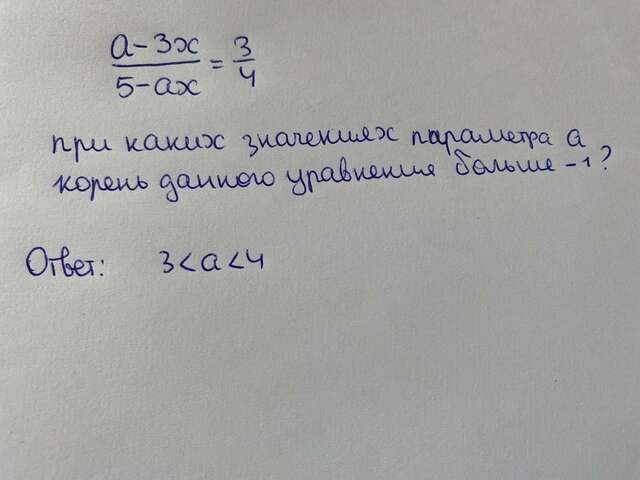 a-3x/5-ax = 3/4
при каких значениях параметра a
корень данного уравнения больше -1?
Ответ: 3<a<4